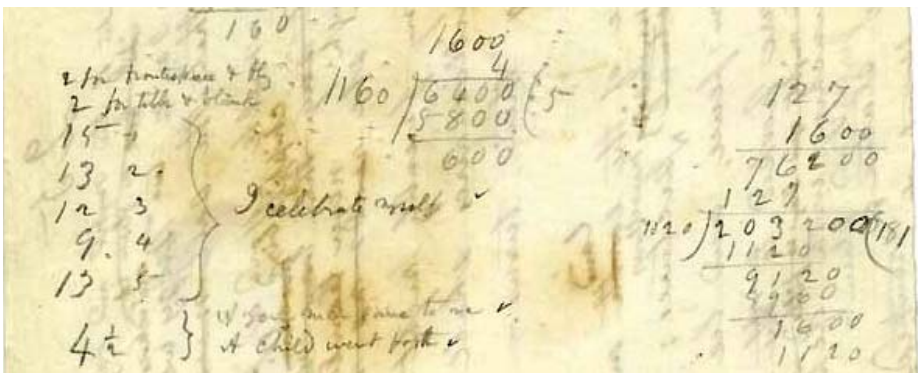 160
2 for frontispiece & fly
2 for title & blank
15 1
13 2
12 3
9. 4
13 5
I celebrate myself ✓
4 1/2 } If you come to me ✓
A child went forth ✓
1600
4
1160 ) 6400 ( 5
5800
600
127
1600
76200
127
1120 ) 203200 ( 181
1120
9120
1600
1120